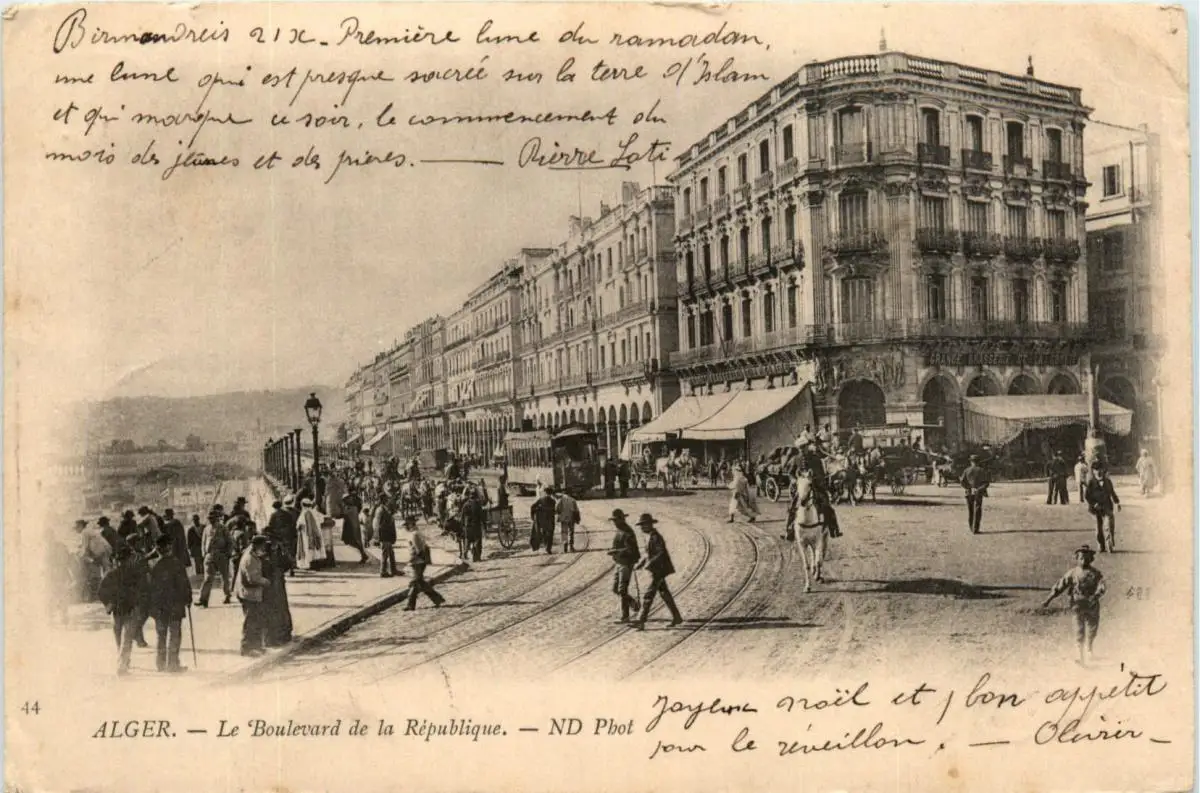 Birmandreis 21 X - Première lune du ramadan,
une lune qui est presque sacrée sur la terre d'Islam
et qui marque ce soir, le commencement du
mois des jeûnes et des prières. — Pierre Loti
GRANDE BRASSERIE
44
ALGER. — Le Boulevard de la République. — ND Phot
Joyeux noël et bon appétit
pour le réveillon. — Olivier —